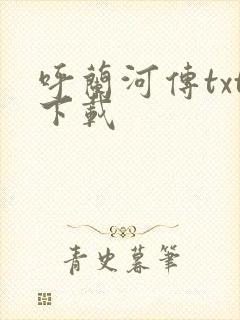 呼蘭河傳txt
下載
青史暮筆